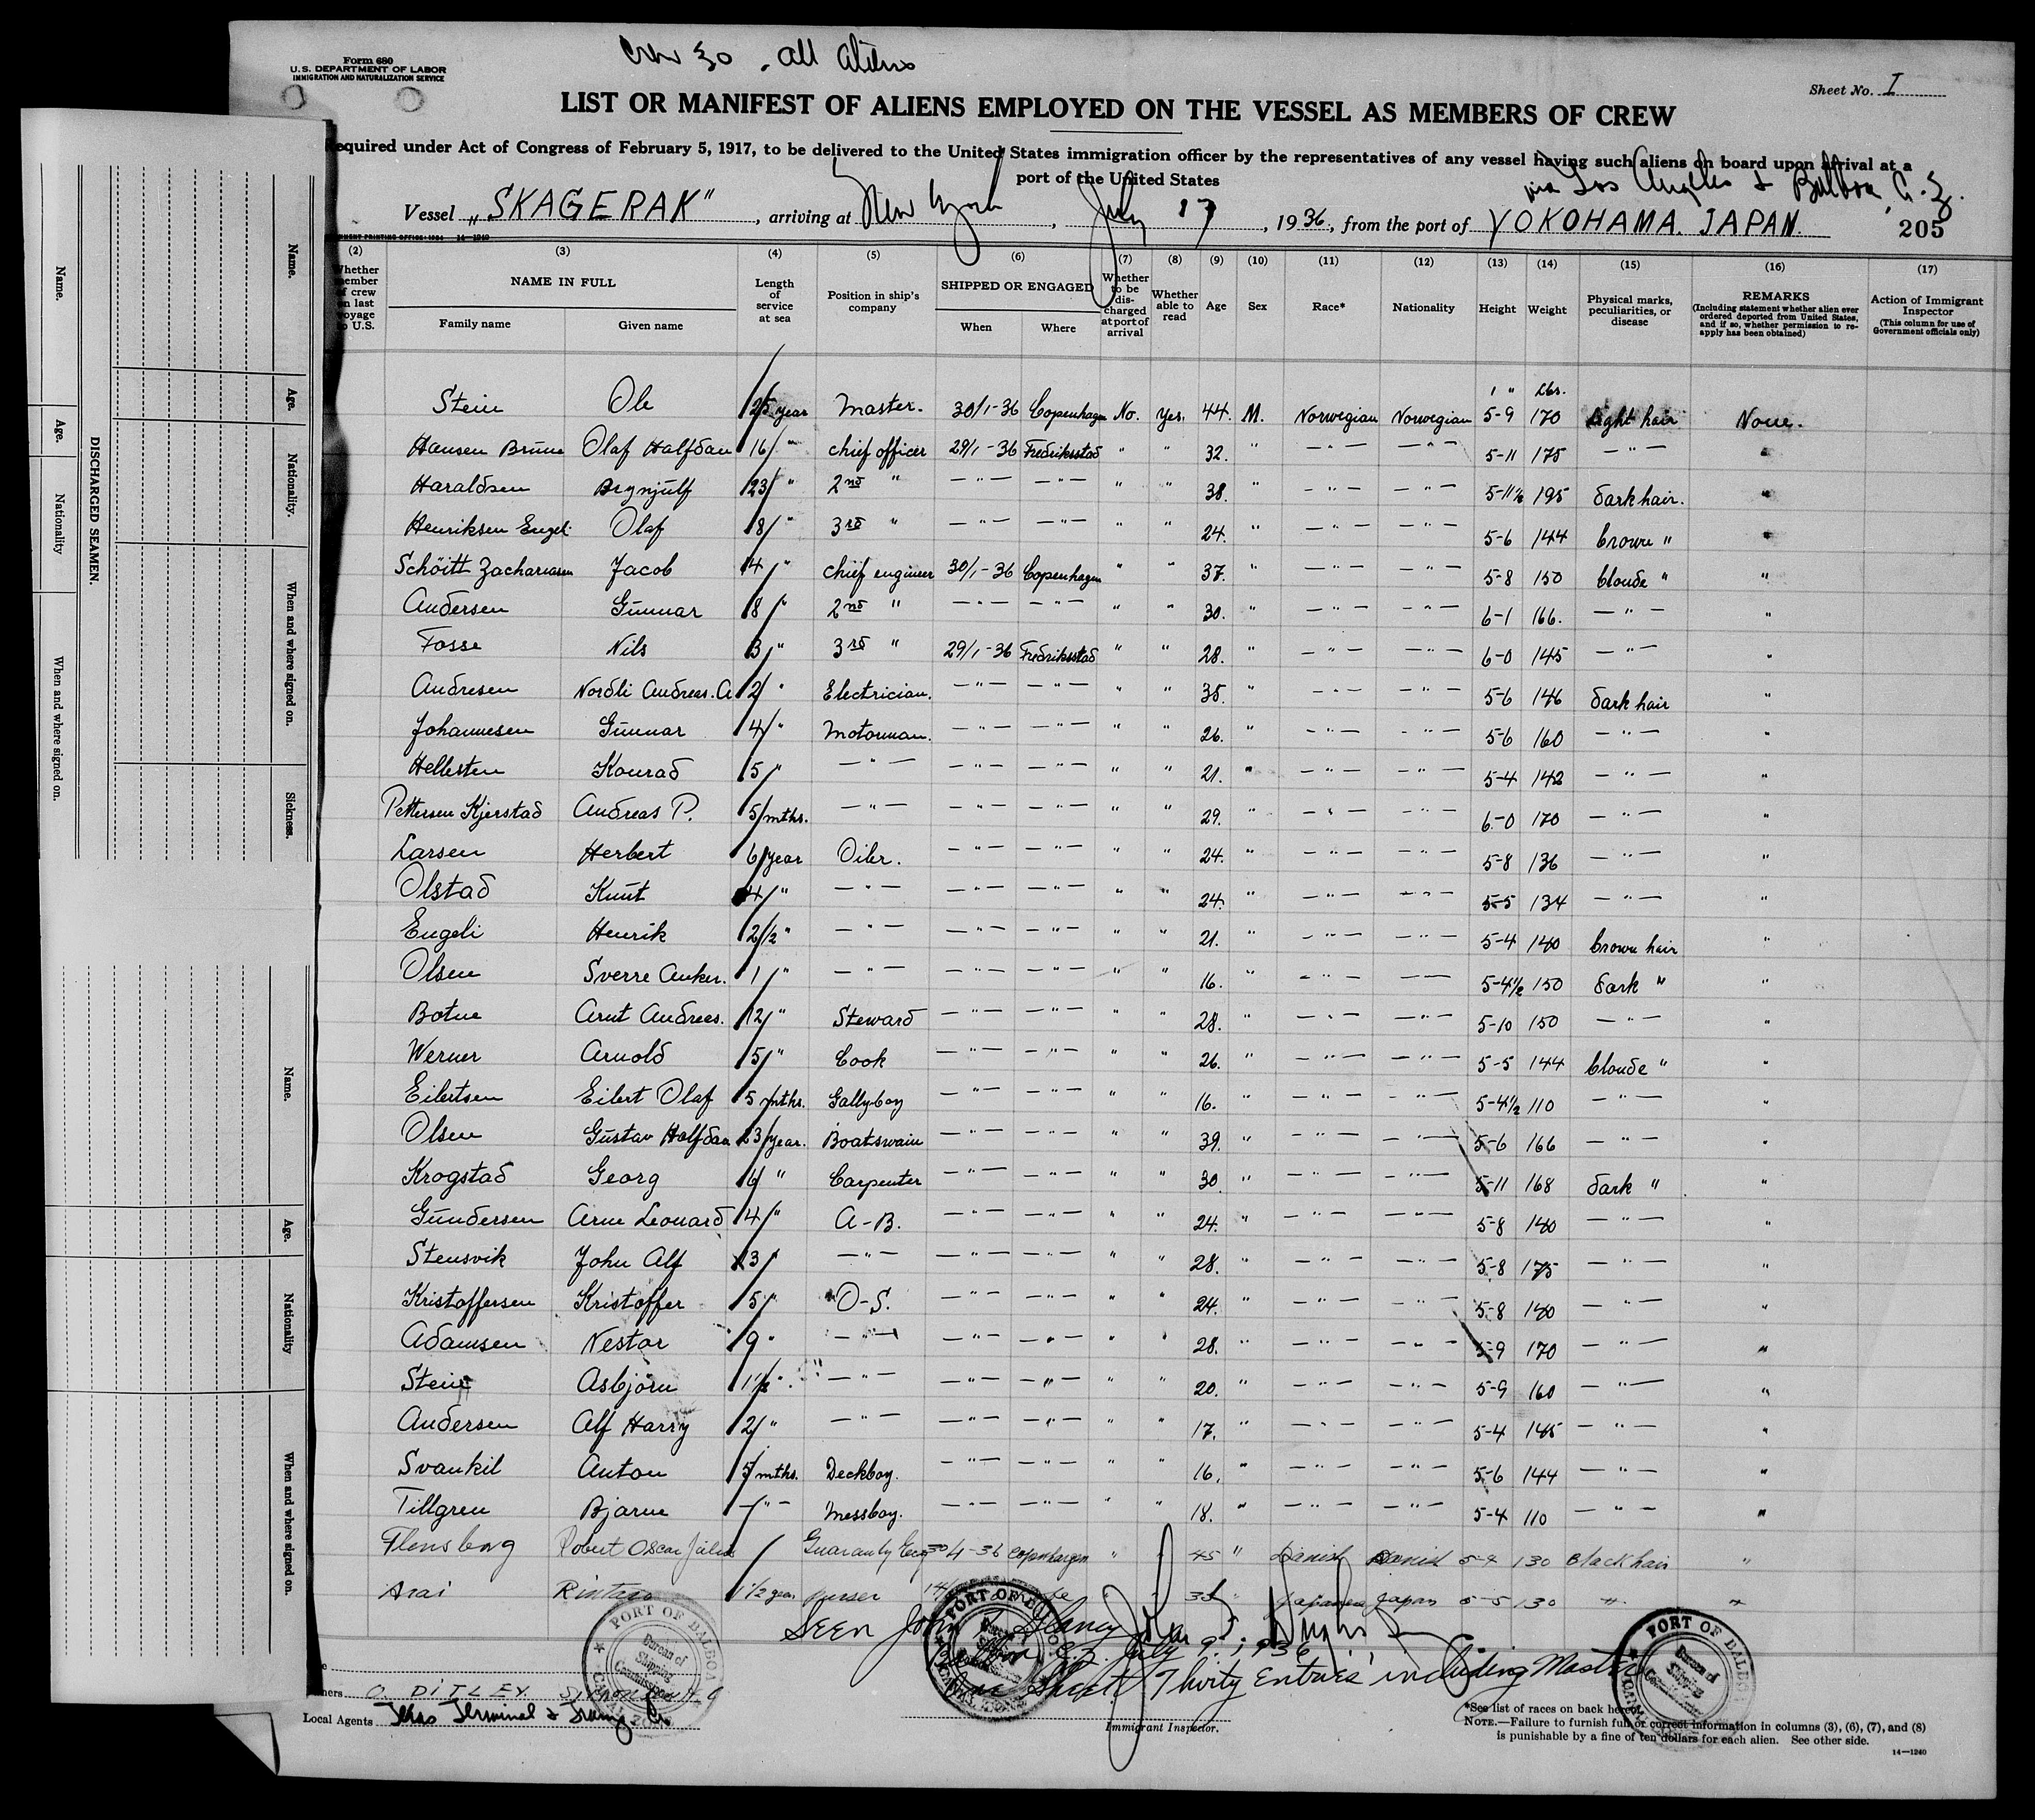 Form 680
U.S. DEPARTMENT OF LABOR
IMMIGRATION AND NATURALIZATION SERVICE
Crew 30, all aliens
Sheet No. I
LIST OR MANIFEST OF ALIENS EMPLOYED ON THE VESSEL AS MEMBERS OF CREW
Required under Act of Congress of February 5, 1917, to be delivered to the United States immigration officer by the representatives of any vessel having such aliens on board upon arrival at a
port of the United States
via Los Angeles & Balboa, C.Z.
Vessel „SKAGERAK", arriving at New York, July 17, 1936, from the port of YOKOHAMA. JAPAN.
205
(2) (3) (4) (5) (6) (7) (8) (9) (10) (11) (12) (13) (14) (15) (16) (17)
Whether member of crew on last voyage to U.S. NAME IN FULL Family name Given name Length of service at sea Position in ship's company SHIPPED OR ENGAGED When Where Whether to be discharged at port of arrival Whether able to read Age Sex Race* Nationality Height Weight Physical marks, peculiarities, or disease REMARKS (Including statement whether alien ever ordered deported from United States, and if so, whether permission to reapply has been obtained) Action of Immigrant Inspector (This column for use of Government officials only)
' " Lbs.
Stein Ole 25 year Master. 30/1-36 Copenhagen No. Yes. 44. M. Norwegian Norwegian 5-9 170 Light hair None.
Hansen Bruun Olaf Halfdan 16 " chief officer 29/1-36 Fredriksstad " " 32. " - " - - " - 5-11 175 - " - "
Haraldsen Brynjulf 23 " 2nd " - " - - " - " " 38. " - " - - " - 5-11½ 195 dark hair. "
Henriksen Engel Olaf 8 " 3rd " - " - - " - " " 24. " - " - - " - 5-6 144 brown " "
Schöitt Zachariasen Jacob 4 " chief engineer 30/1-36 Copenhagen " " 37. " - " - - " - 5-8 150 blonde " "
Andersen Gunnar 8 " 2nd " - " - - " - " " 30. " - " - - " - 6-1 166. - " - "
Fosse Nils 3 " 3rd " 29/1-36 Fredriksstad " " 28. " - " - - " - 6-0 145 - " - "
Andresen Nordli Andreas. A 2 " Electrician. - " - - " - " " 35. " - " - - " - 5-6 146 dark hair "
Johannesen Gunnar 4 " Motorman. - " - - " - " " 26. " - " - - " - 5-6 160 - " - "
Hellesten Konrad 5 " - " - - " - - " - " " 21. " - " - - " - 5-4 142 - " - "
Pettersen Kjerstad Andreas P. 5 mths. - " - - " - - " - " " 29. " - " - - " - 6-0 170 - " - "
Larsen Herbert 6 year Oiler. - " - - " - " " 24. " - " - - " - 5-8 136 - " - "
Olstad Knut 4 " - " - - " - - " - " " 24. " - " - - " - 5-5 134 - " - "
Engeli Henrik 2½ " - " - - " - - " - " " 21. " - " - - " - 5-4 140 brown hair "
Olsen Sverre Anker. 1 " - " - - " - - " - " " 16. " - " - - " - 5-4½ 150 dark " "
Botne Arnt Andreas. 12 " Steward - " - - " - " " 28. " - " - - " - 5-10 150 - " - "
Werner Arnold 5 " Cook - " - - " - " " 26. " - " - - " - 5-5 144 blonde " "
Eilertsen Eilert Olaf 5 mths. Gallyboy - " - - " - " " 16. " - " - - " - 5-4½ 110 - " - "
Olsen Gustav Halfdan 23 year. Boatswain - " - - " - " " 39. " - " - - " - 5-6 166 - " - "
Krogstad Georg 16 " Carpenter - " - - " - " " 30 " - " - - " - 5-11 168 dark " "
Gundersen Arne Leonard 4 " A-B. - " - - " - " " 24. " - " - - " - 5-8 140 - " - "
Stensvik John Alf 3 " - " - - " - - " - " " 28. " - " - - " - 5-8 175 - " - "
Kristoffersen Kristoffer 5 " O-S. - " - - " - " " 24. " - " - - " - 5-8 140 - " - "
Adamsen Nestor 9 " - " - - " - - " - " " 28. " - " - - " - 5-9 170 - " - "
Stein Asbjörn 1½ " - " - - " - - " - " " 20. " - " - - " - 5-9 160 - " - "
Andersen Alf Harry 2 " - " - - " - - " - " " 17. " - " - - " - 5-4 145 - " - "
Svankil Anton 5 mths. Deckboy. - " - - " - " " 16. " - " - - " - 5-6 144 - " - "
Tillgren Bjarne - " - Messboy. - " - - " - " " 18. " - " - - " - 5-4 110 - " - "
Flensborg Robert Oscar Julius Guaranty Eng 30/4-36 Copenhagen " " 45 " Danish Danish 5-4 130 Black hair "
Arai Rintaro 1½ year purser " " Japanese Japan 5-5 130 " "
Seen John
Balboa, C.Z. July 9, 1936
One Sheet Thirty Entries including Master
PORT OF BALBOA
Bureau of Shipping Commissioner
CANAL ZONE
PORT OF BALBOA
CANAL ZONE
PORT OF BALBOA
Bureau of Shipping Commissioner
CANAL ZONE
Owners O. DITLEV SIMONSEN
Local Agents Texas Terminal & Co
Immigrant Inspector.
*See list of races on back hereof.
NOTE.—Failure to furnish full or correct information in columns (3), (6), (7), and (8)
is punishable by a fine of ten dollars for each alien. See other side.
14—1240
DISCHARGED SEAMEN.
Name. Age. Nationality. When and where signed on. Sickness.
Name. Age. Nationality When and where signed on.
Name. Age. Nationality When and where signed on.